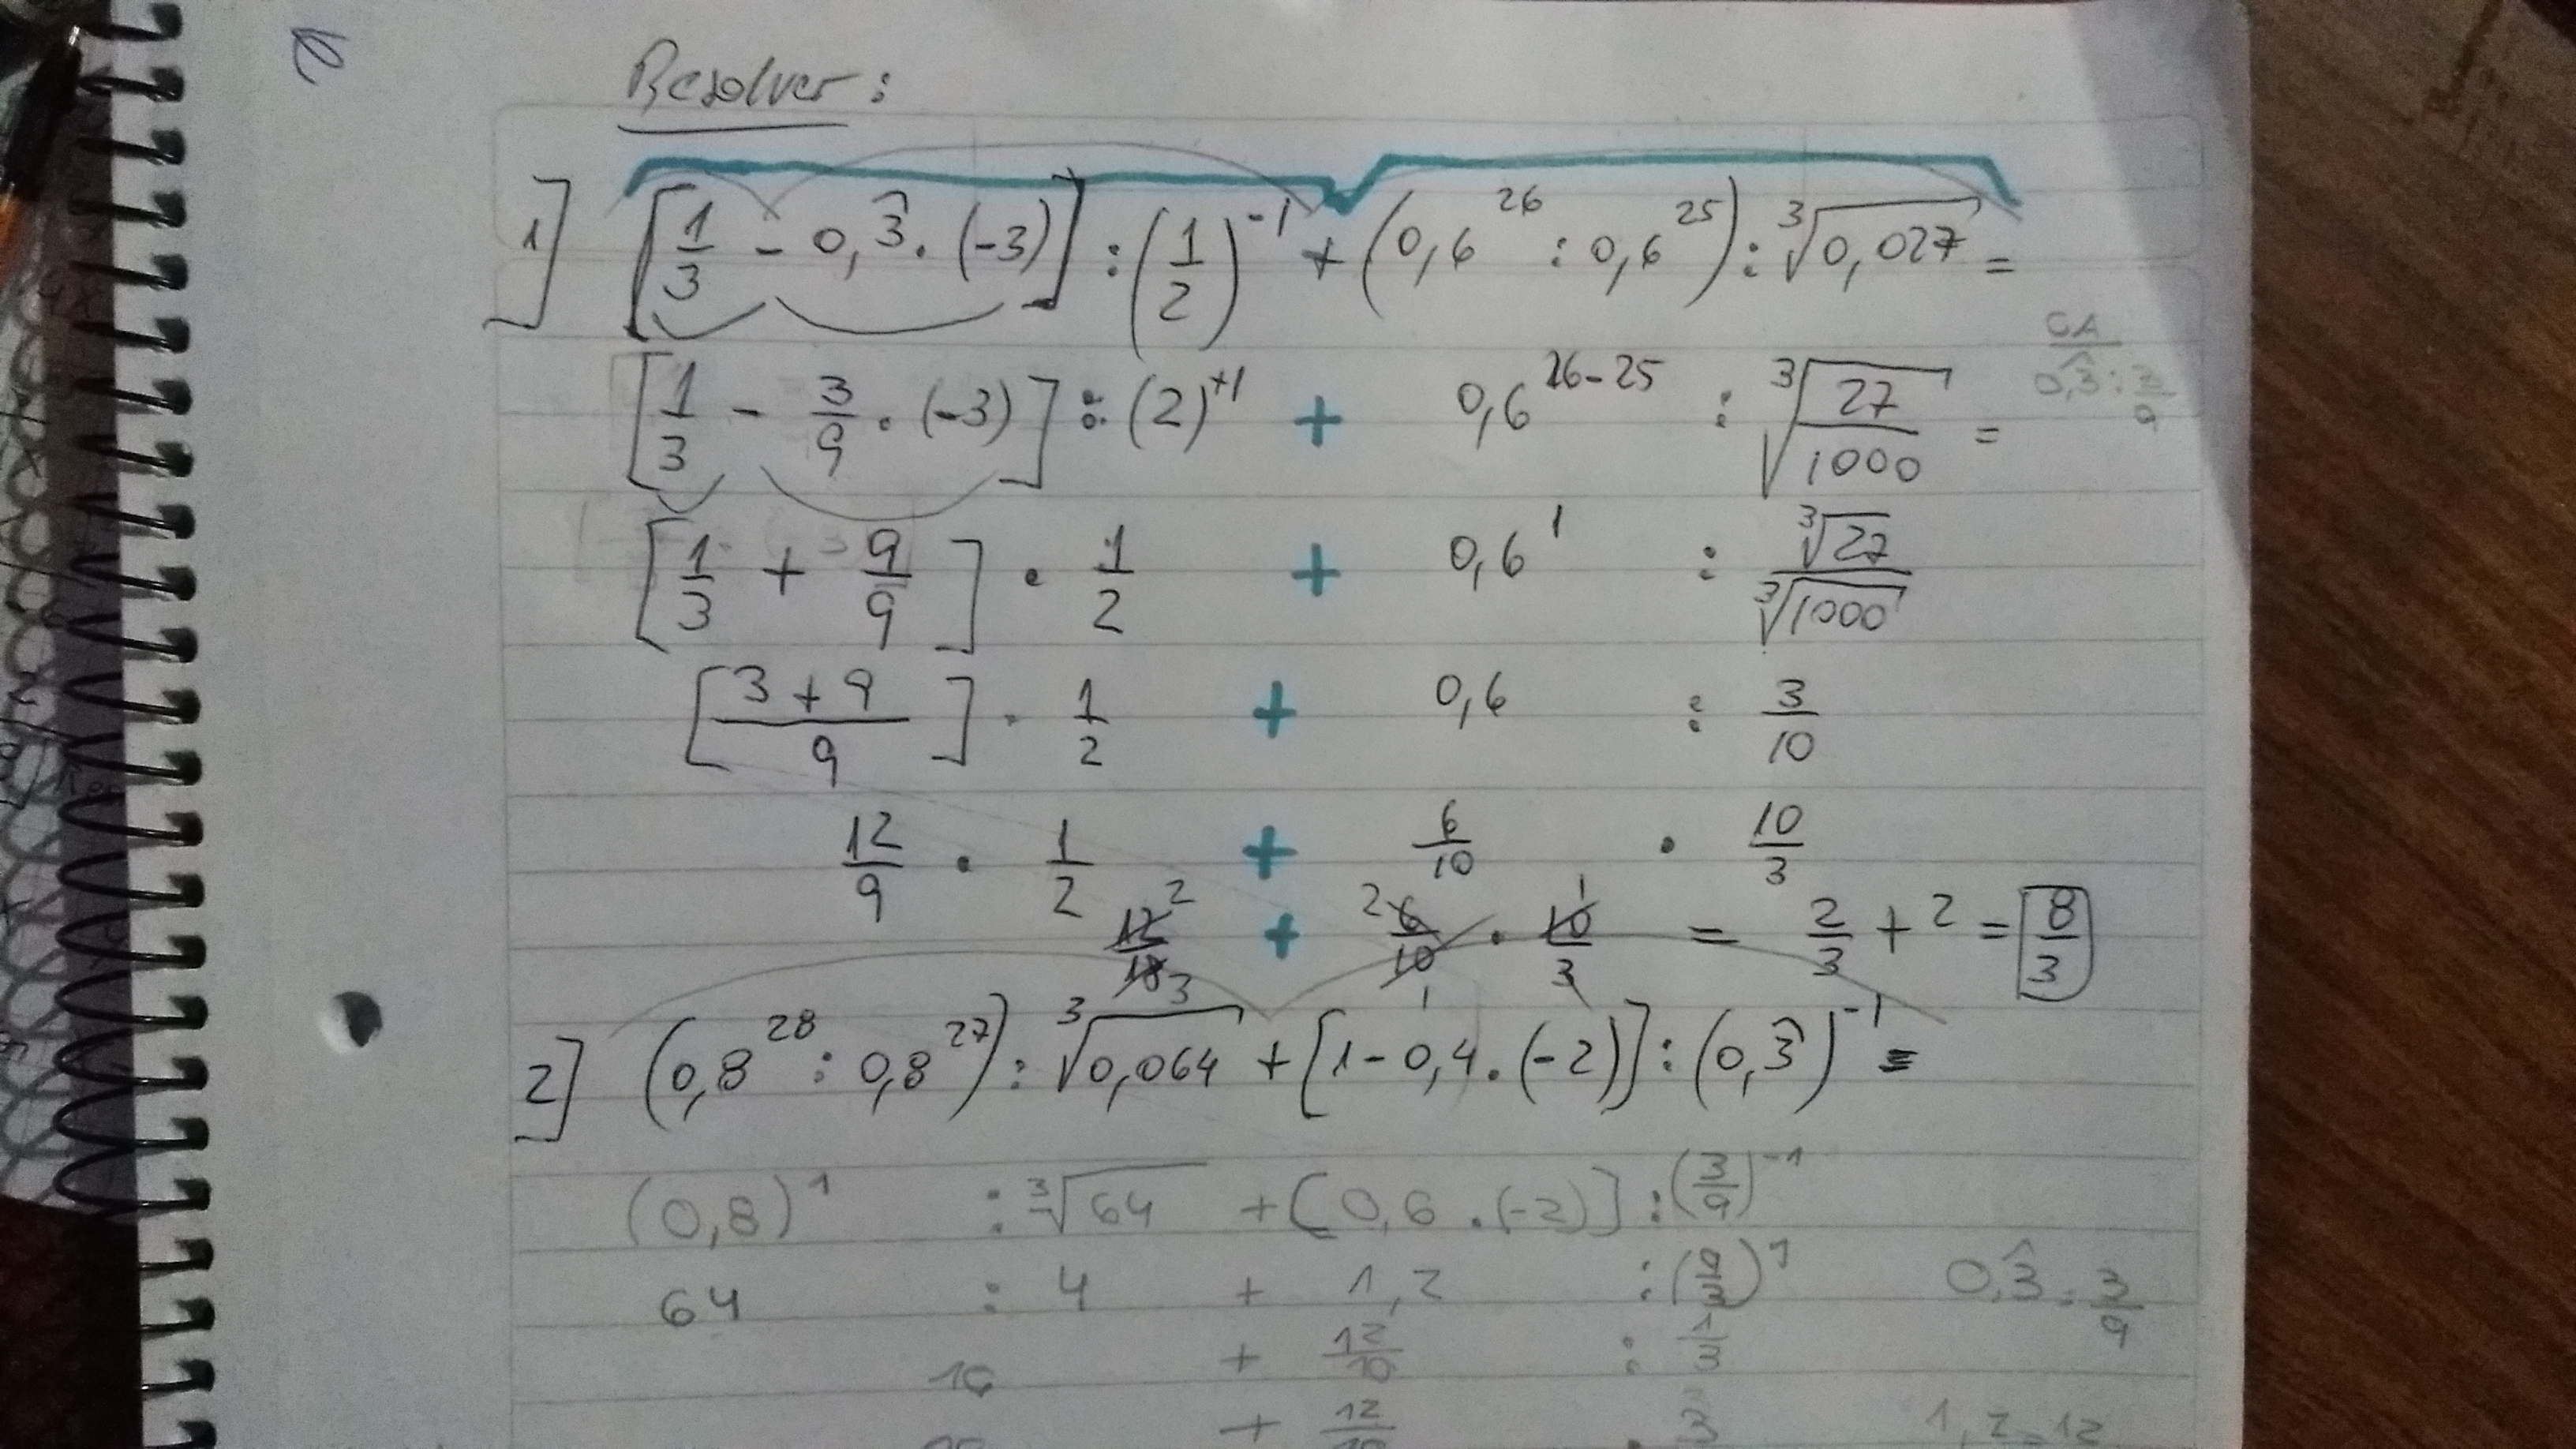 Resolver :
1] [1/3 - 0,3̂ . (-3)] : (1/2)^-1 + (0,6^26 : 0,6^25) : ∛0,027 =
CA
[1/3 - 3/9 . (-3)] : (2)^+1 + 0,6^26-25 : ∛27/1000 =
0,3̂ : 3/9
[1/3 + 9/9] . 1/2 + 0,6^1 : ∛27/∛1000
[3+9/9] . 1/2 + 0,6 : 3/10
12/9 . 1/2 + 6/10 . 10/3
12/18 2/3 + 2 6/10 1 . 10/3 1 = 2/3 + 2 = 8/3
2] (0,8^28 : 0,8^27) : ∛0,064 + [1 - 0,4 . (-2)] : (0,3̂)^-1 =
(0,8)^1 : ∛64 + (0,6 . (-2)] : (3/9)^-1
64 : 4 + 1,2 : (9/3)^1 0,3̂ : 3/9
16 + 12/10 :
+ 12/10 . 3